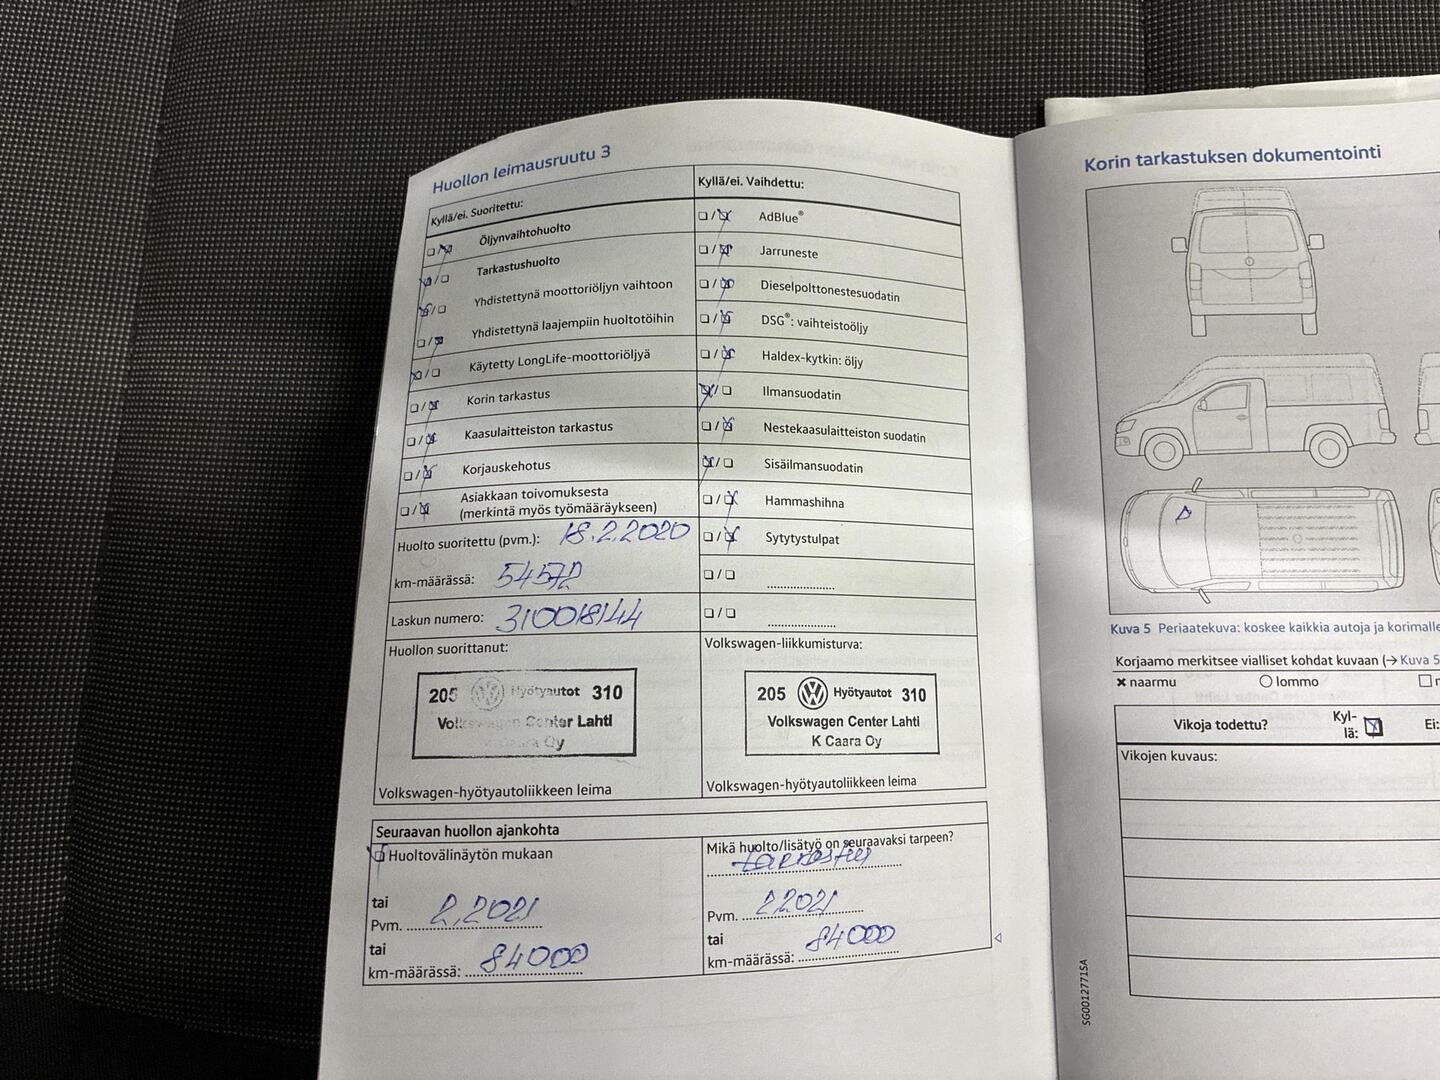 Huollon leimausruutu 3
Kyllä/ei. Suoritettu:
Öljynvaihtohuolto
Tarkastushuolto
Yhdistettynä moottoriöljyn vaihtoon
Yhdistettynä laajempiin huoltotöihin
Käytetty LongLife-moottoriöljyä
Korin tarkastus
Kaasulaitteiston tarkastus
Korjauskehotus
Asiakkaan toivomuksesta
(merkintä myös työmääräykseen)
Huolto suoritettu (pvm.): 18.2.2020
km-määrässä: 54572
Laskun numero: 310018144
Huollon suorittanut:
205 Hyötyautot 310
Volkswagen Center Lahti
K Caara Oy
Volkswagen-hyötyautoliikkeen leima
Kyllä/ei. Vaihdettu:
AdBlue®
Jarruneste
Dieselpolttonestesuodatin
DSG®: vaihteistoöljy
Haldex-kytkin: öljy
Ilmansuodatin
Nestekaasulaitteiston suodatin
Sisäilmansuodatin
Hammashihna
Sytytystulpat
Volkswagen-liikkumisturva:
205 Hyötyautot 310
Volkswagen Center Lahti
K Caara Oy
Volkswagen-hyötyautoliikkeen leima
Seuraavan huollon ajankohta
Huoltovälinäytön mukaan
tai
Pvm. 2,2021
tai
km-määrässä: 84000
Mikä huolto/lisätyö on seuraavaksi tarpeen?
Pvm. 2.2021
tai
km-määrässä: 84000
Korin tarkastuksen dokumentointi
Kuva 5 Periaatekuva: koskee kaikkia autoja ja korimalle
Korjaamo merkitsee vialliset kohdat kuvaan (→ Kuva 5
naarmu lommo
Vikoja todettu? Kyl-
lä: Ei:
Vikojen kuvaus:
SG0012771SA